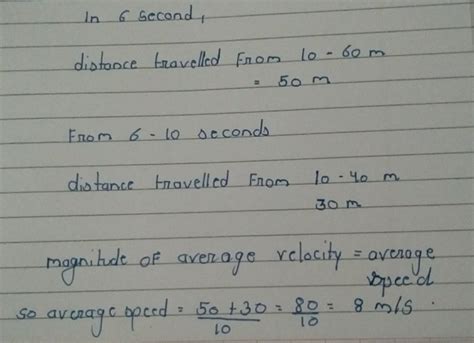 In 6 second,
distance travelled From 10 - 60 m
= 50 m
From 6 - 10 seconds
distance travelled From 10 - 40 m
30 m
magnitude of average velocity = average
speed
so average speed = 50 + 30 / 10 = 80 / 10 = 8 m/s .